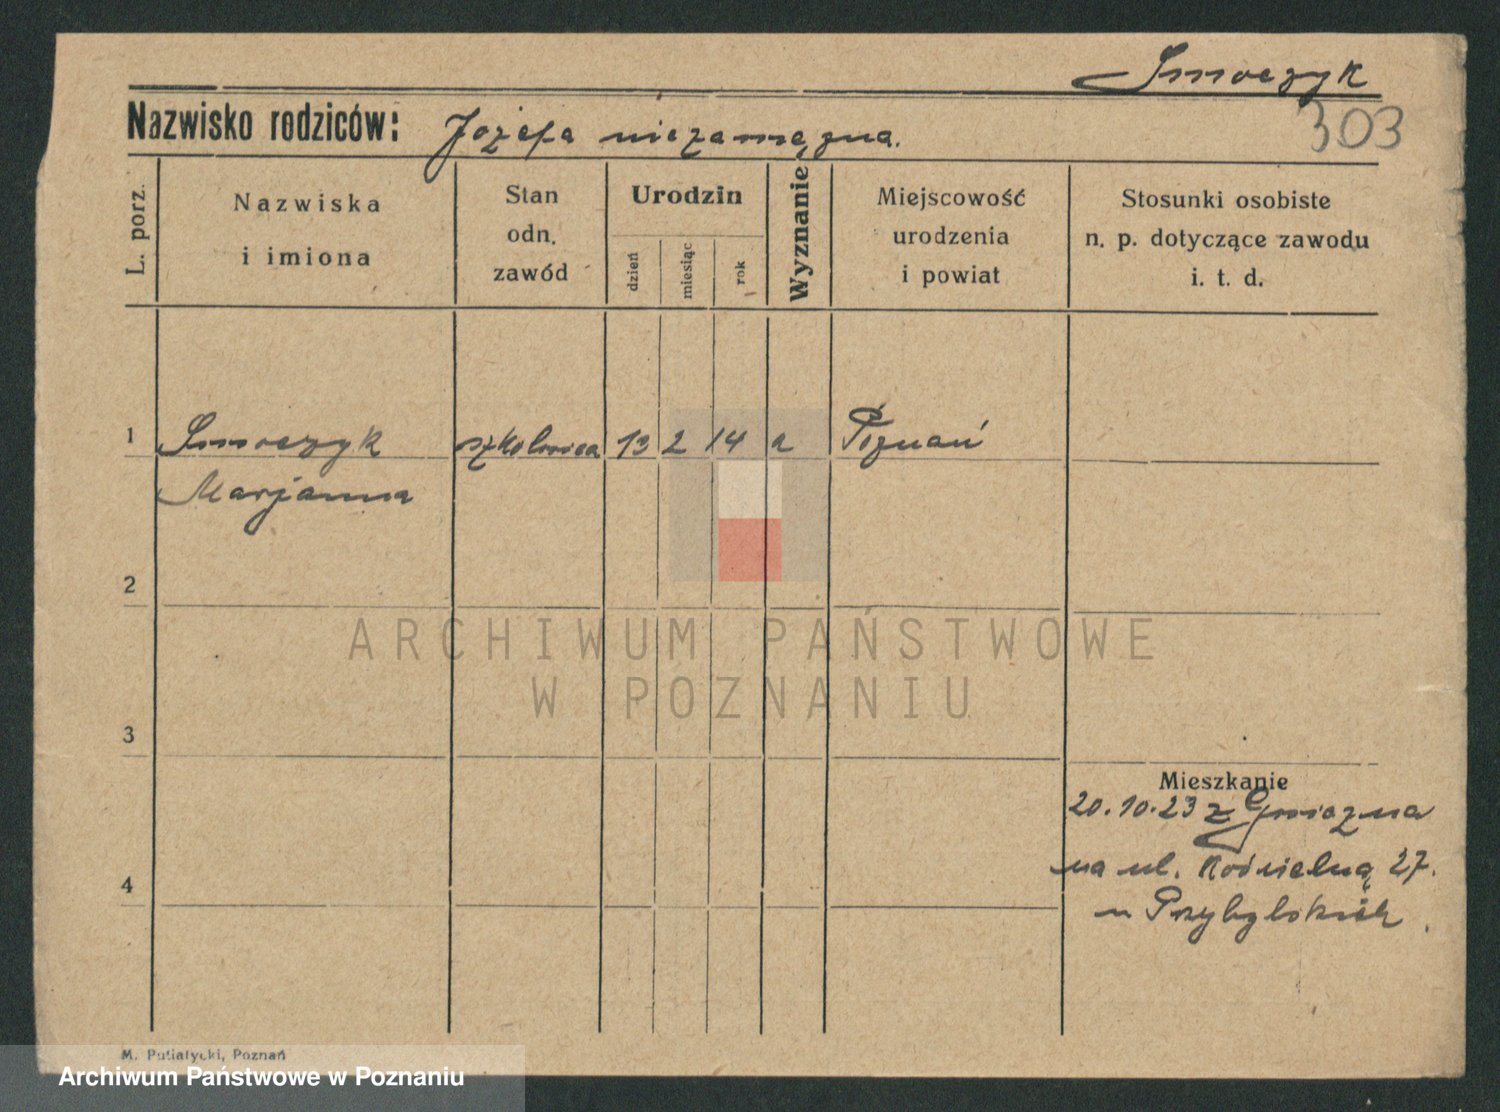 Smoczyk
303
Nazwisko rodziców: Józefa niezamężna.
L. porz.
Nazwiska
i imiona
Stan
odn.
zawód
Urodzin
dzień
miesiąc
rok
Wyznanie
Miejscowość
urodzenia
i powiat
Stosunki osobiste
n. p. dotyczące zawodu
i. t. d.
1 Smoczyk szkolnica 13 2 14 k Poznań
Marjanna
2
ARCHIWUM PAŃSTWOWE
W POZNANIU
3
Mieszkanie
20.10.23 z Gniezna
na ul. Kościelną 27.
4
u Przybylskich.
M. Putiatycki, Poznań
Archiwum Państwowe w Poznaniu